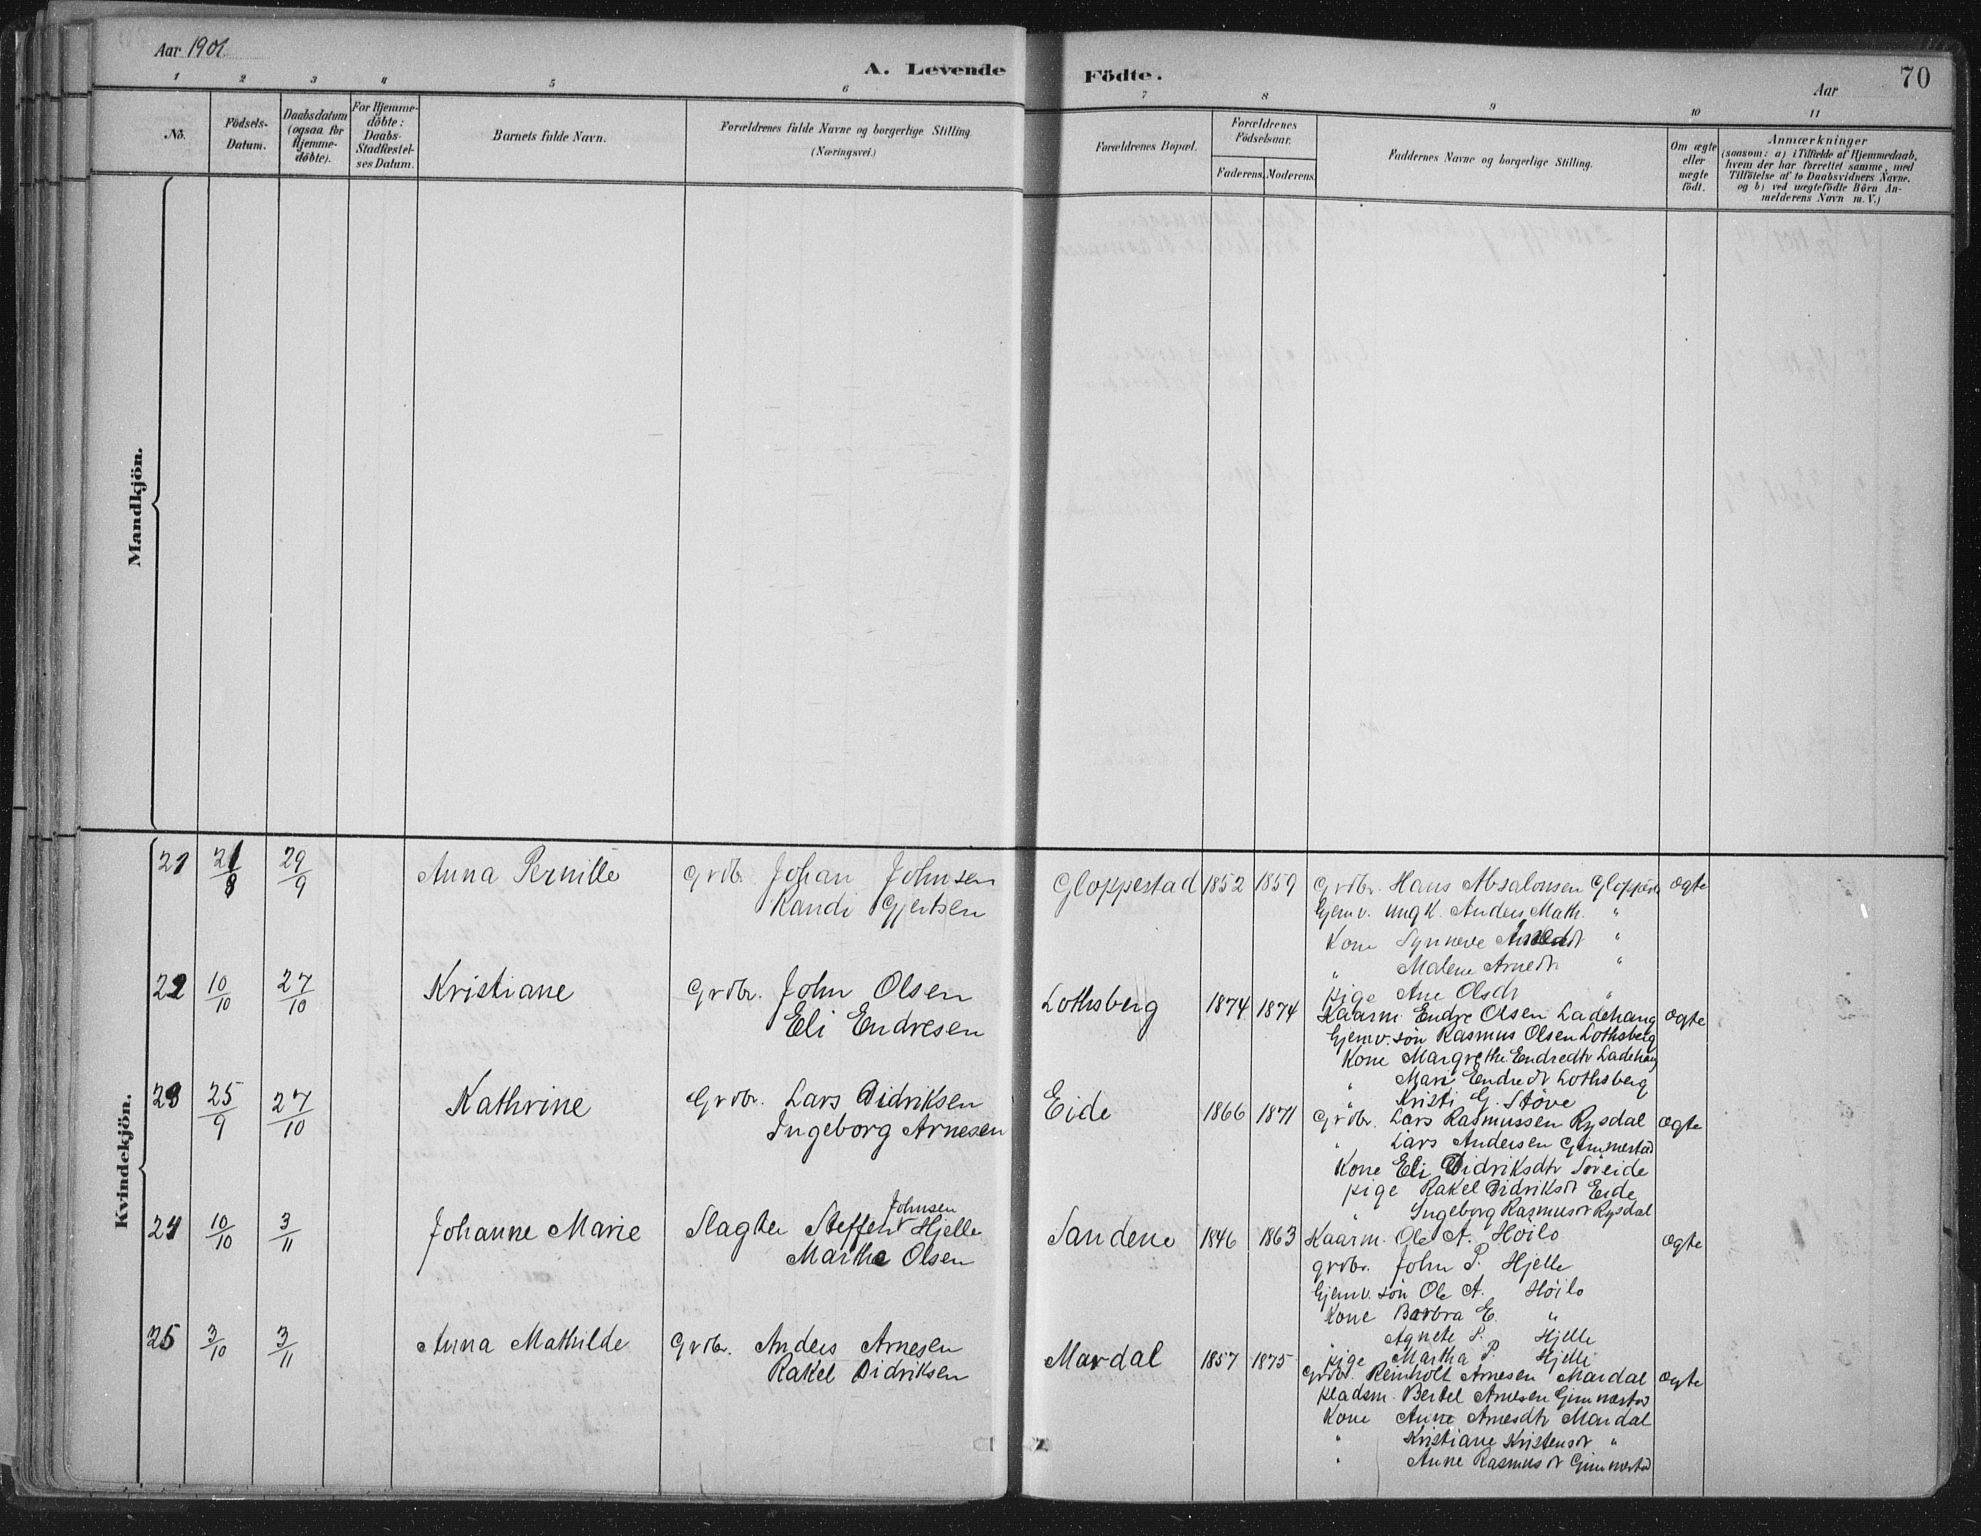 Aar 1901.
A. Levende
Födte.
Aar
70
1 2 3 4 5 6 7 8 9 10 11
No.
Födsels-
Datum.
Daabsdatum
(ogsaa for
Hjemme-
döbte).
For Hjemme-
döbte:
Daabs-
Stadfæstel-
ses Datum.
Barnets fulde Navn.
Forældrenes fulde Navne og borgerlige Stilling.
(Næringsvei.)
Forældrenes Bopæl.
Forældrenes
Födselsaar.
Faderens. Moderens.
Faddernes Navne og borgerlige Stilling.
Om ægte
eller
uægte
födt.
Anmærkninger
(saasom: a) i Tilfælde af Hjemmedaab,
hvem der har forrettet samme, med
Tilföielse af to Daabsvidners Navne.
og b) ved uægtefödte Börn An-
melderens Navn m. V.)
Mandkjön.
Kvindekjön.
21 21/8 29/9 Anna Pernille Grdbr. Johan Johnsen Gloppestad 1852 1859 Grdbr. Hans Absalonsen Gloppest. ægte
Randi Gjertsen
Hjemv. ungk. Anders Math. "
Kone Synneve "
" Malene Arnedtr "
pige Ane Olsdtr "
22 10/10 27/10 Kristiane Grdbr. John Olsen Lothsberg 1874 1874 Kaarm. Endre Olsen Ladehaug ægte
Eli Endresen
Hjemv. søn Rasmus Olsen Lothsberg
Kone Margrethe Endredtr Ladehaug
" Mari Endredtr Lothsberg
" Kristi G. Støve
23 25/9 27/10 Kathrine Grdbr. Lars Didriksen Eide 1866 1871 Grdbr. Lars Rasmussen Rysdal ægte
Ingeborg Arnesen
" Lars Andersen Gimmestad
Kone Eli Didriksdtr Søreide
pige Rakel Didriksdr Eide
" Ingeborg Rasmusdr Rysdal
24 10/10 3/11 Johanne Marie Slagter Steffen Johnsen Hjelle Sandene 1846 1863 Kaarm. Ole A. Høilo ægte
Marthe Olsen
grdbr. John P. Hjelle
Hjemv. søn Ole A. Høilo
Kone Barbra E. "
" Agnete S. Hjelle
pige Martha P. Hjelle
25 3/10 3/11 Anna Mathilde Grdbr. Anders Arnesen Mardal 1857 1875 Grdbr. Reinholt Arnesen Mardal ægte
Rakel Didriksen
pladsm. Bertel Arnesen Gimmestad
Kone Anne Arnesdtr Mardal
" Kristiane Kristensdr "
" Anne Rasmusdr Gimmestad